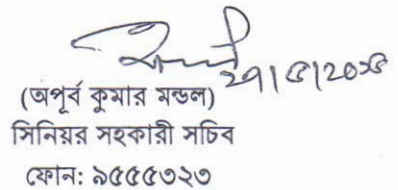 (অপূর্ব কুমার মন্ডল)
সিনিয়র সহকারী সচিব
ফোন: ৯৫৫৫৩২৩